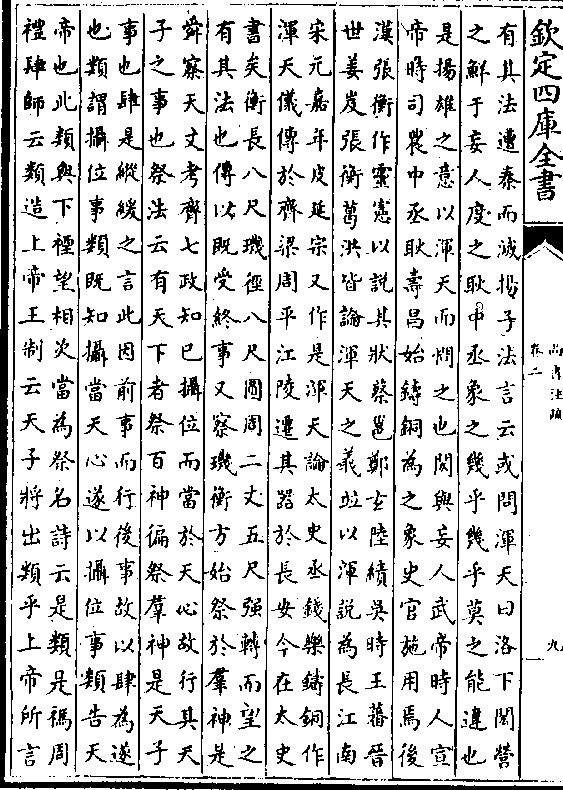 欽定四庫全書
尚書注疏
卷二
九
有其法遭秦而滅揚子法言云或問渾天曰洛下閎營
之鮮于妄人度之耿中丞象之幾乎幾乎莫之能違也
是揚雄之意以渾天而問之也閎與妄人武帝時人宣
帝時司農中丞耿壽昌始鑄銅為之象史官施用焉後
漢張衡作靈憲以說其狀蔡邕鄭玄陸績吳時王蕃晉
世姜岌張衡葛洪皆論渾天之義並以渾說為長江南
宋元嘉年皮延宗又作是渾天論太史丞錢樂鑄銅作
渾天儀傳於齊梁周平江陵遷其器於長安今在太史
書矣衡長八尺璣徑八尺圓周二丈五尺强轉而望之
有其法也傳以既受終事又察璣衡方始祭於羣神是
舜察天文考齊七政知已攝位而當於天心故行其天
子之事也祭法云有天下者祭百神徧祭羣神是天子
事也肆是縱緩之言此因前事而行後事故以肆為遂
也類謂攝位事類既知攝當天心遂以攝位事類告天
帝也此類與下禋望相次當為祭名詩云是類是禡周
禮肆師云類造上帝王制云天子將出類乎上帝所言